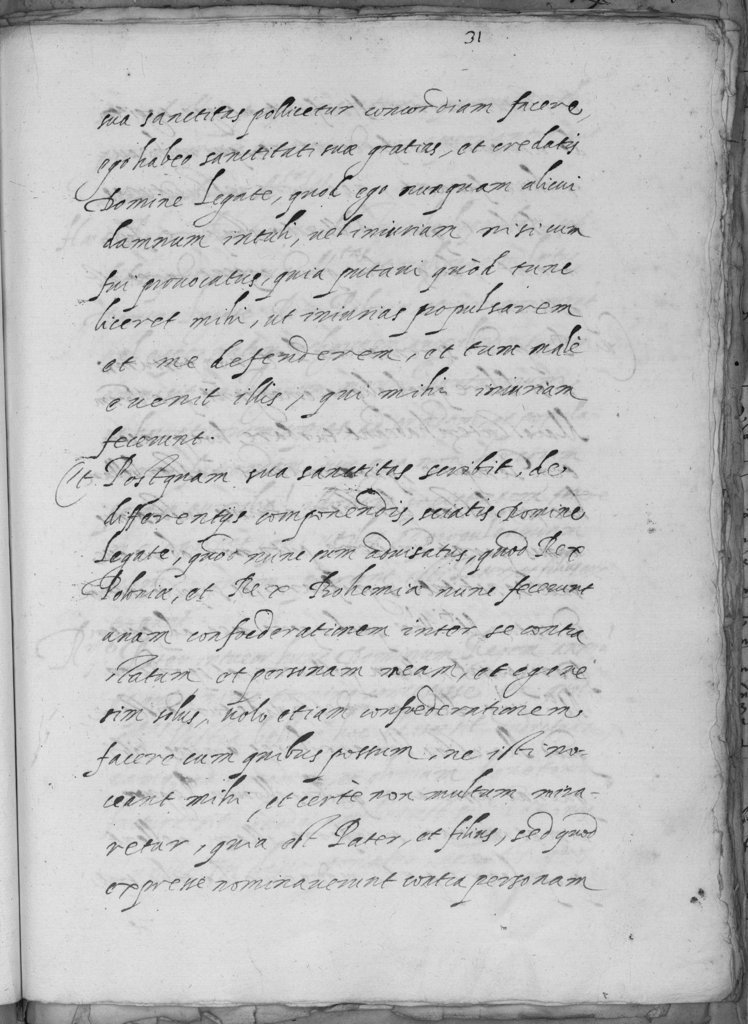 31
sua sanctitas pollicetur concordiam facere,
ego habeo sanctitati suæ gratias, et credatis
Domine Legate, quod ego nunquam alicui
damnum intuli, vel iniuriam nisi cum
fui prouocatus, quia putaui quòd tunc
liceret mihi, ut iniurias propulsarem
et me defenderem, et tum malè
euenit illis, qui mihi iniuriam
fecerunt.
Et Postquam sua sanctitas scribit, de
differentijs componendis, sciatis Domine
Legate, quod nunc sum aduisatus, quod Rex
Poloniæ, et Rex Bohemiæ nunc fecerunt
unam confœderationem inter se contra
statum et personam meam, et ego ne
sim solus, uolo etiam confœderationem
facere cum quibus possum, ne isti no-
ceant mihi, et certè non multum mira-
retur, quia est Pater, et filius, sed quod
expresse nominauerunt contra personam